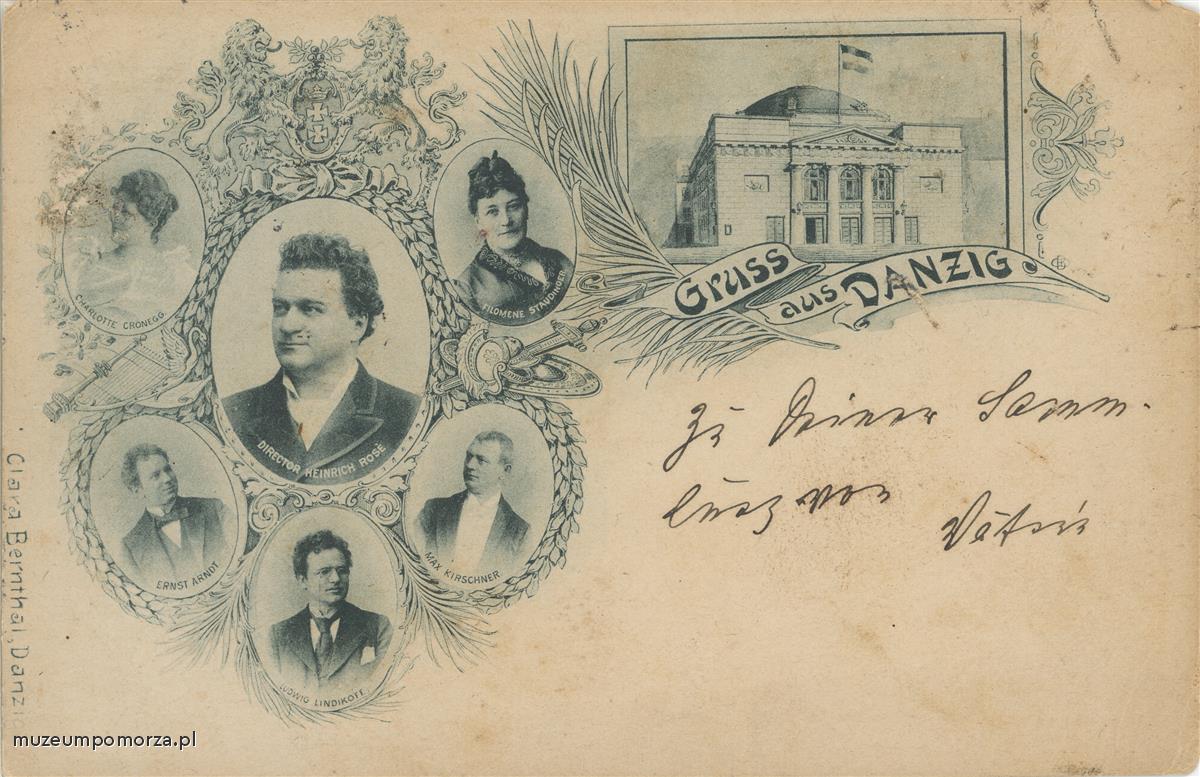 CHARLOTTE CRONEGG
FILOMENE STAUDINGER
DIRECTOR HEINRICH ROSÉ
ERNST ARNDT
MAX KIRSCHNER
LUDWIG LINDIKOFF
Gruss
aus DANZIG
Zu Deiner Samm-
lung von
Clara Bernthal, Danzig
muzeumpomorza.pl